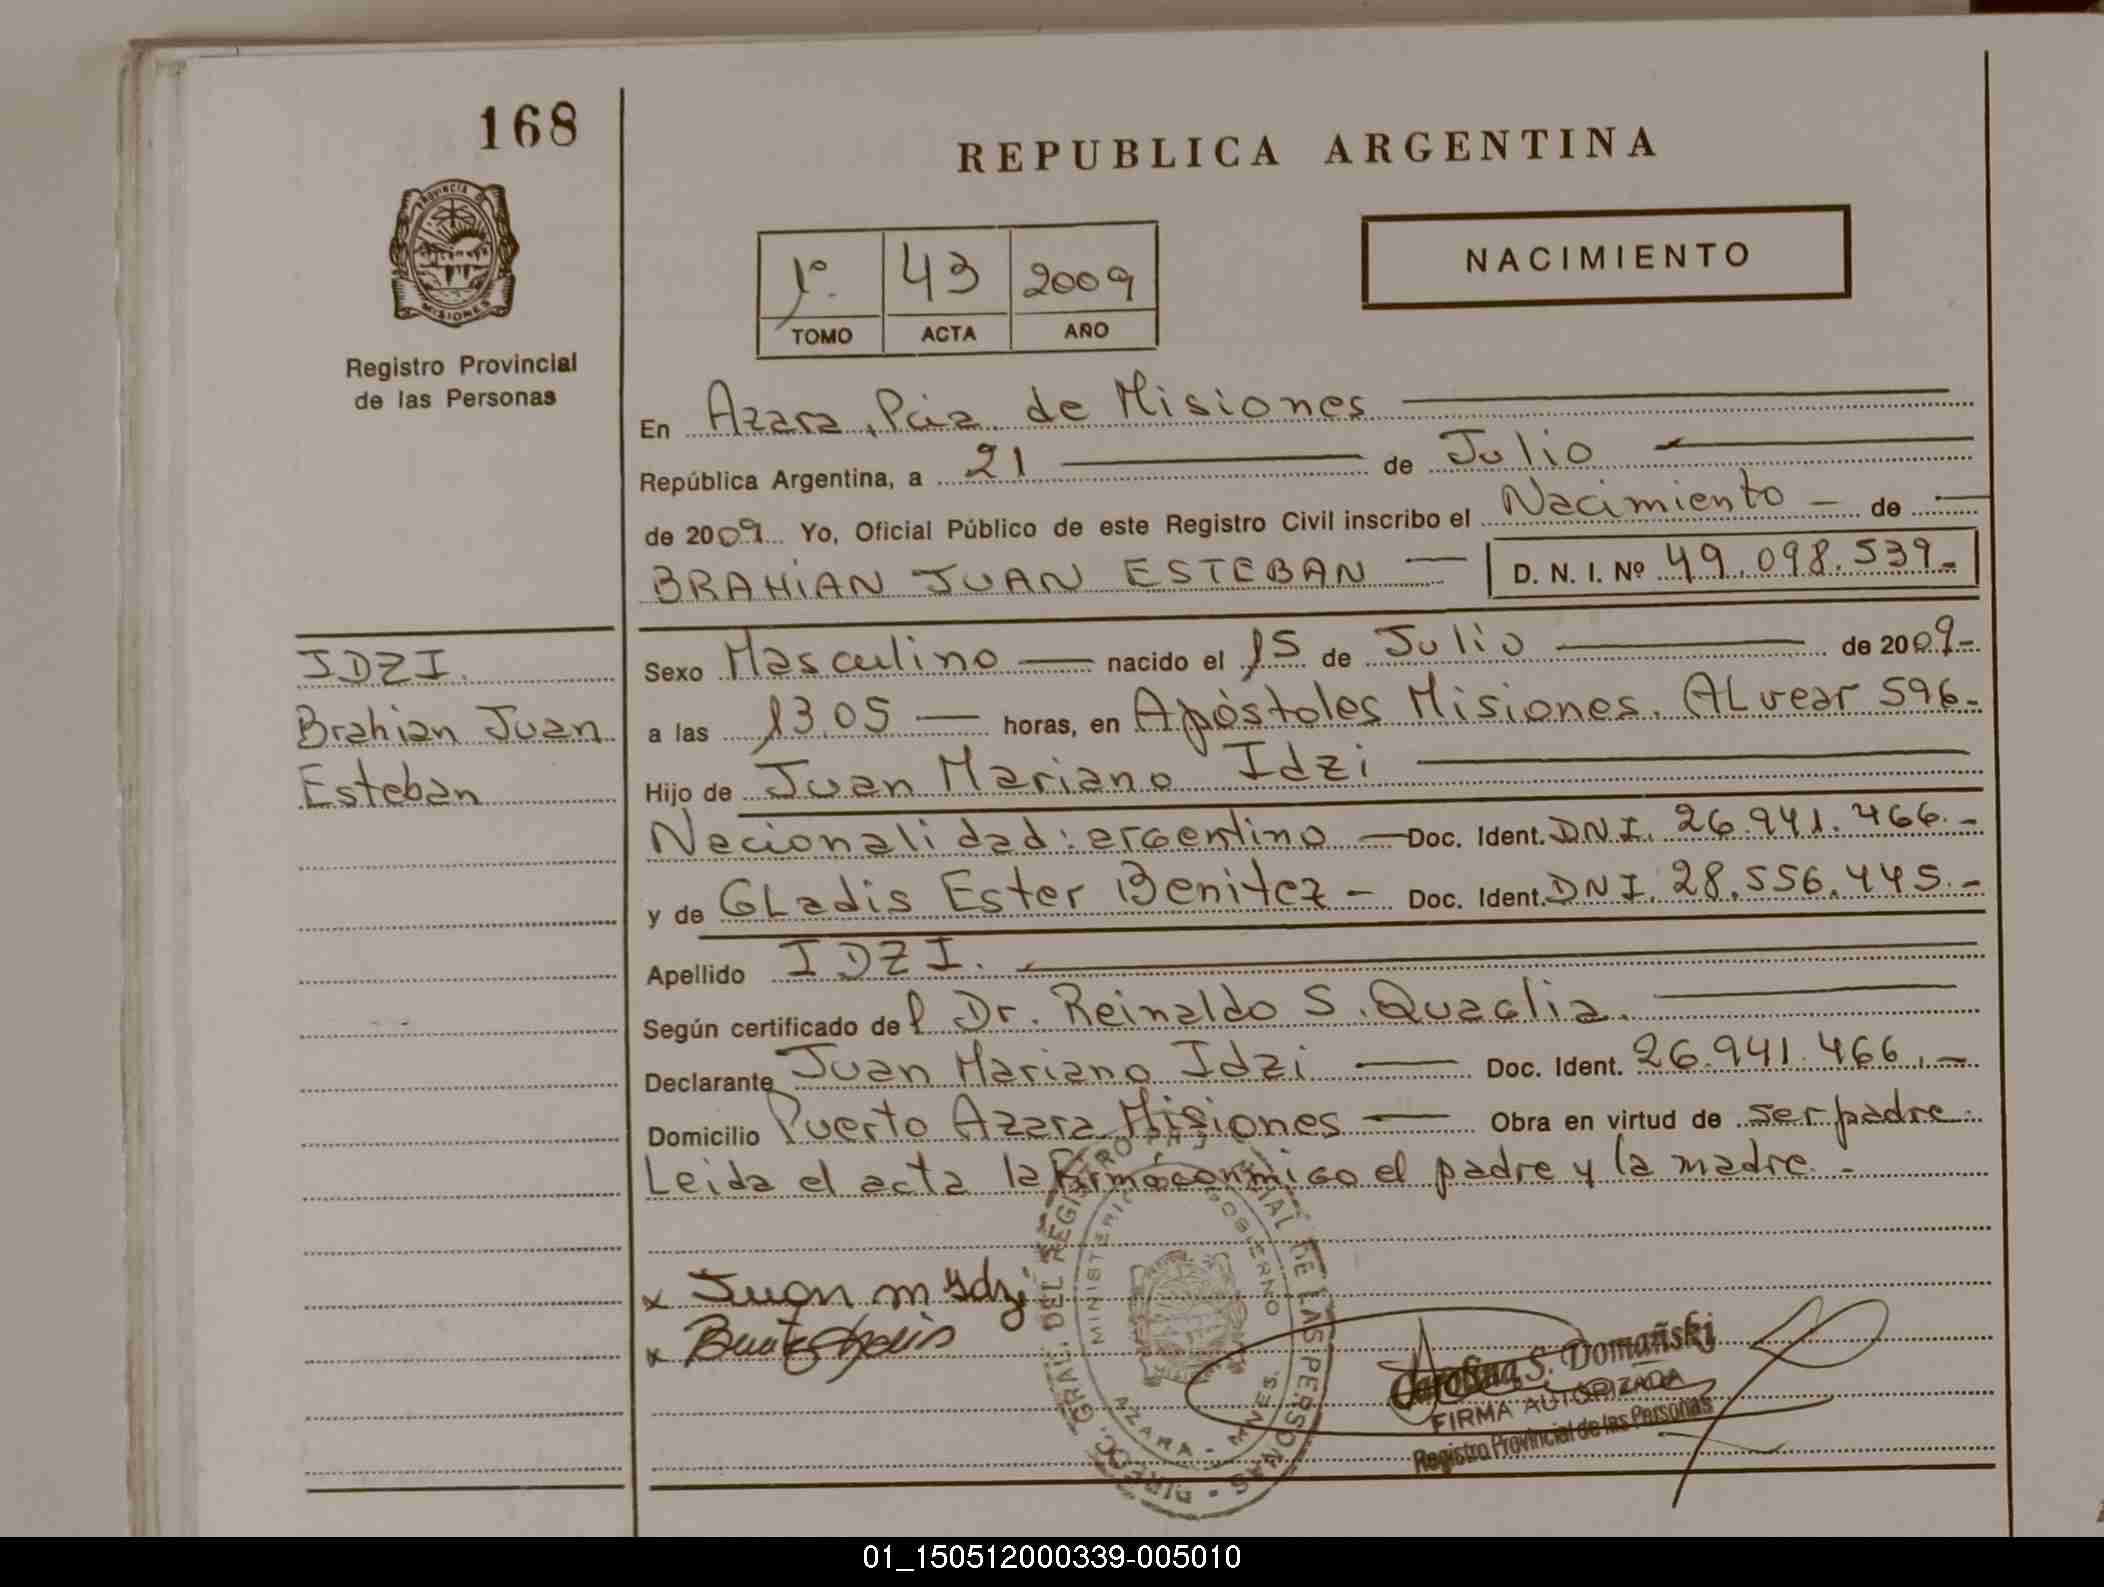 168
REPUBLICA ARGENTINA
PROVINCIA DE
MISIONES
Registro Provincial
de las Personas
NACIMIENTO
1º 43 2009
TOMO ACTA AÑO
En Azara, Pcia de Misiones
República Argentina, a 21 de Julio
de 2009 Yo, Oficial Público de este Registro Civil inscribo el Nacimiento - de
BRAHIAN JUAN ESTEBAN D. N. I. Nº 49.098.539.-
IDZI.
Brahian Juan
Esteban
Sexo Masculino nacido el 15 de Julio de 2009.-
a las 13.05 horas, en Apóstoles Misiones. ALvear 596-
Hijo de Juan Mariano Idzi
Nacionalidad: argentino Doc. Ident. DNI. 26.941.466.-
y de GLadis Ester Benitez - Doc. Ident. DNI. 28.556.445.-
Apellido IDZI.
Según certificado del Dr. Reinaldo S. Quaglia.
Declarante Juan Mariano Idzi Doc. Ident. 26.941.466.-
Domicilio Puerto Azara Misiones Obra en virtud de ser padre
Leida el acta la firma conmigo el padre y la madre.-
x Juan m Ydzi
x
DIRECC. GRAL. DEL REGISTRO PROVINCIAL DE LAS PERSONAS
MINISTERIO GOBIERNO
AZARA - MNES.
Carolina S. Domañski
FIRMA AUTORIZADA
Registro Provincial de las Personas
01_150512000339-005010